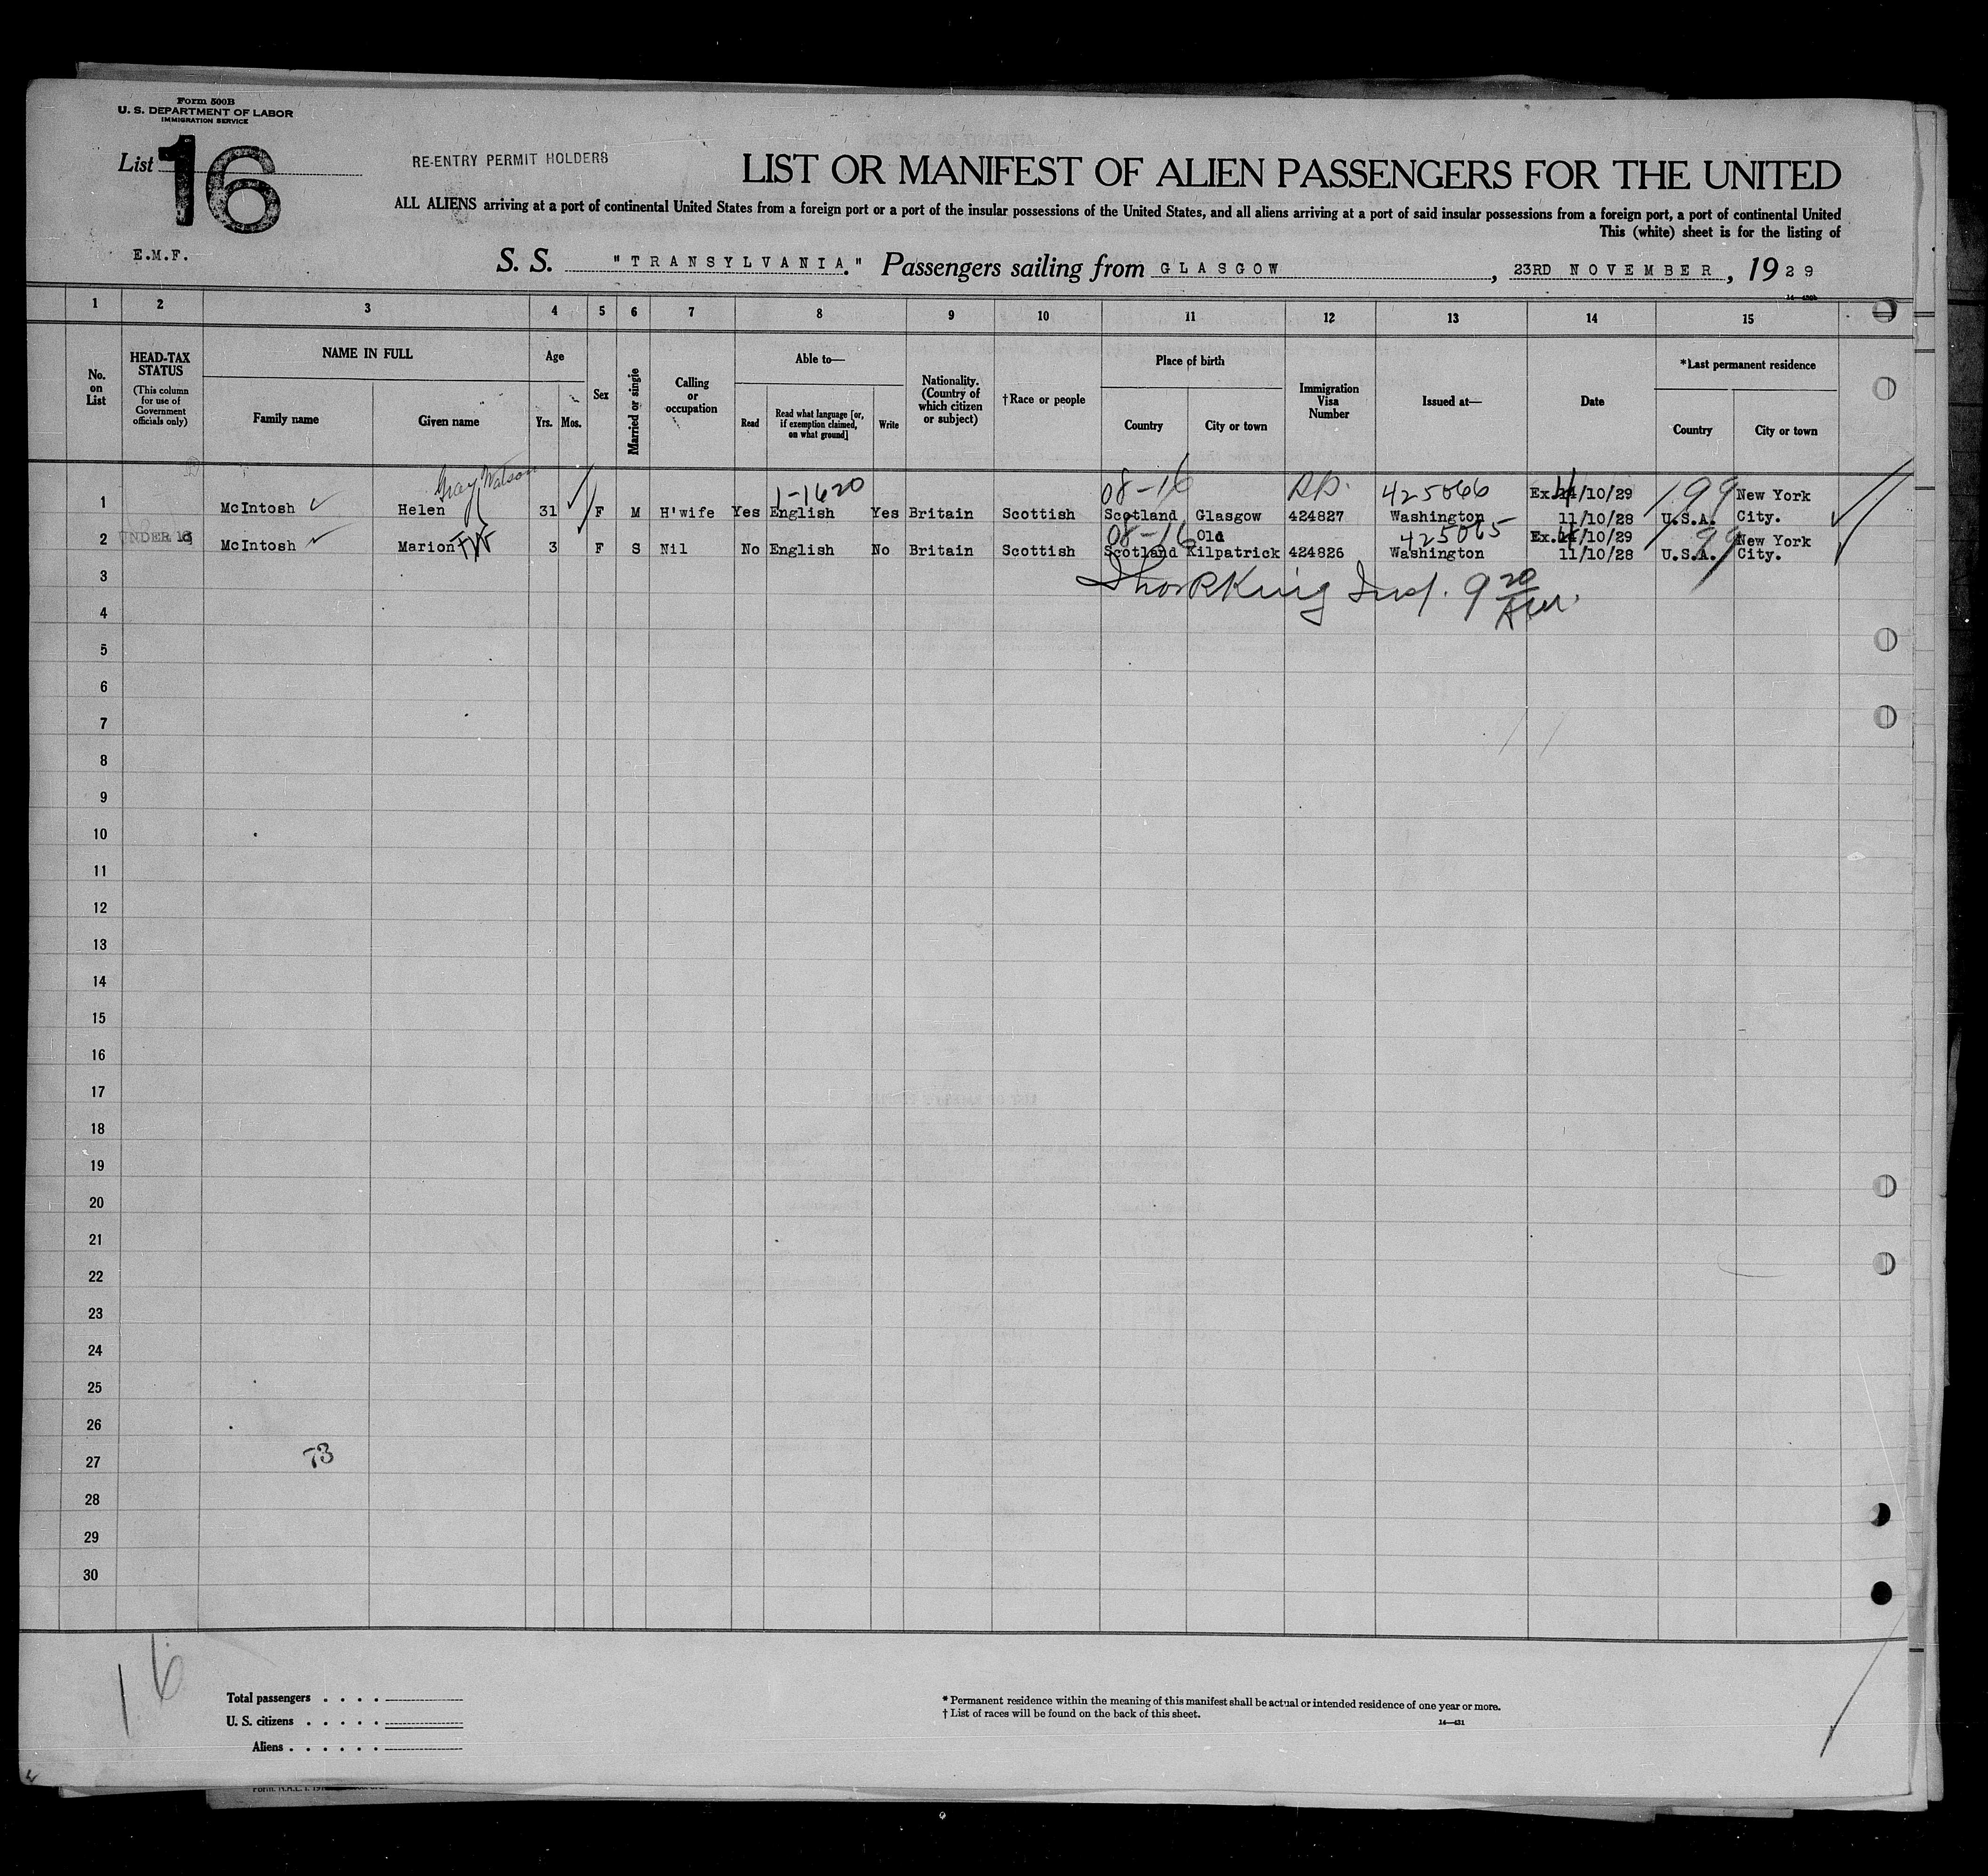 Form 500B
U. S. DEPARTMENT OF LABOR
IMMIGRATION SERVICE
List 16
RE-ENTRY PERMIT HOLDERS
LIST OR MANIFEST OF ALIEN PASSENGERS FOR THE UNITED
ALL ALIENS arriving at a port of continental United States from a foreign port or a port of the insular possessions of the United States, and all aliens arriving at a port of said insular possessions from a foreign port, a port of continental United
This (white) sheet is for the listing of
E.M.F.
S. S. "TRANSYLVANIA." Passengers sailing from GLASGOW, 23RD NOVEMBER, 1929
1 2 3 4 5 6 7 8 9 10 11 12 13 14 15
No. on List
HEAD-TAX STATUS
(This column for use of Government officials only)
NAME IN FULL
Family name
Given name
Age
Yrs.
Mos.
Sex
Married or single
Calling or occupation
Able to—
Read
Read what language [or, if exemption claimed, on what ground]
Write
Nationality. (Country of which citizen or subject)
†Race or people
Place of birth
Country
City or town
Immigration Visa Number
Issued at—
Date
*Last permanent residence
Country
City or town
Gray Watson
1-1620 08-16 425066 Ex. /10/29 199 New York
1 McIntosh Helen 31 F M H'wife Yes English Yes Britain Scottish Scotland Glasgow 424827 Washington 11/10/28 U.S.A. City.
08-16 Old 425065 Ex. /10/29 99 New York
2 UNDER 16 McIntosh Marion 3 F S Nil No English No Britain Scottish Scotland Kilpatrick 424826 Washington 11/10/28 U.S.A. City.
3 King Insp. 9 20 AM.
4
5
6
7
8
9
10
11
12
13
14
15
16
17
18
19
20
21
22
23
24
25
26
27 73
28
29
30
16
Total passengers . . . .
U. S. citizens . . . . .
Aliens . . . . . .
* Permanent residence within the meaning of this manifest shall be actual or intended residence of one year or more.
† List of races will be found on the back of this sheet.
14—431